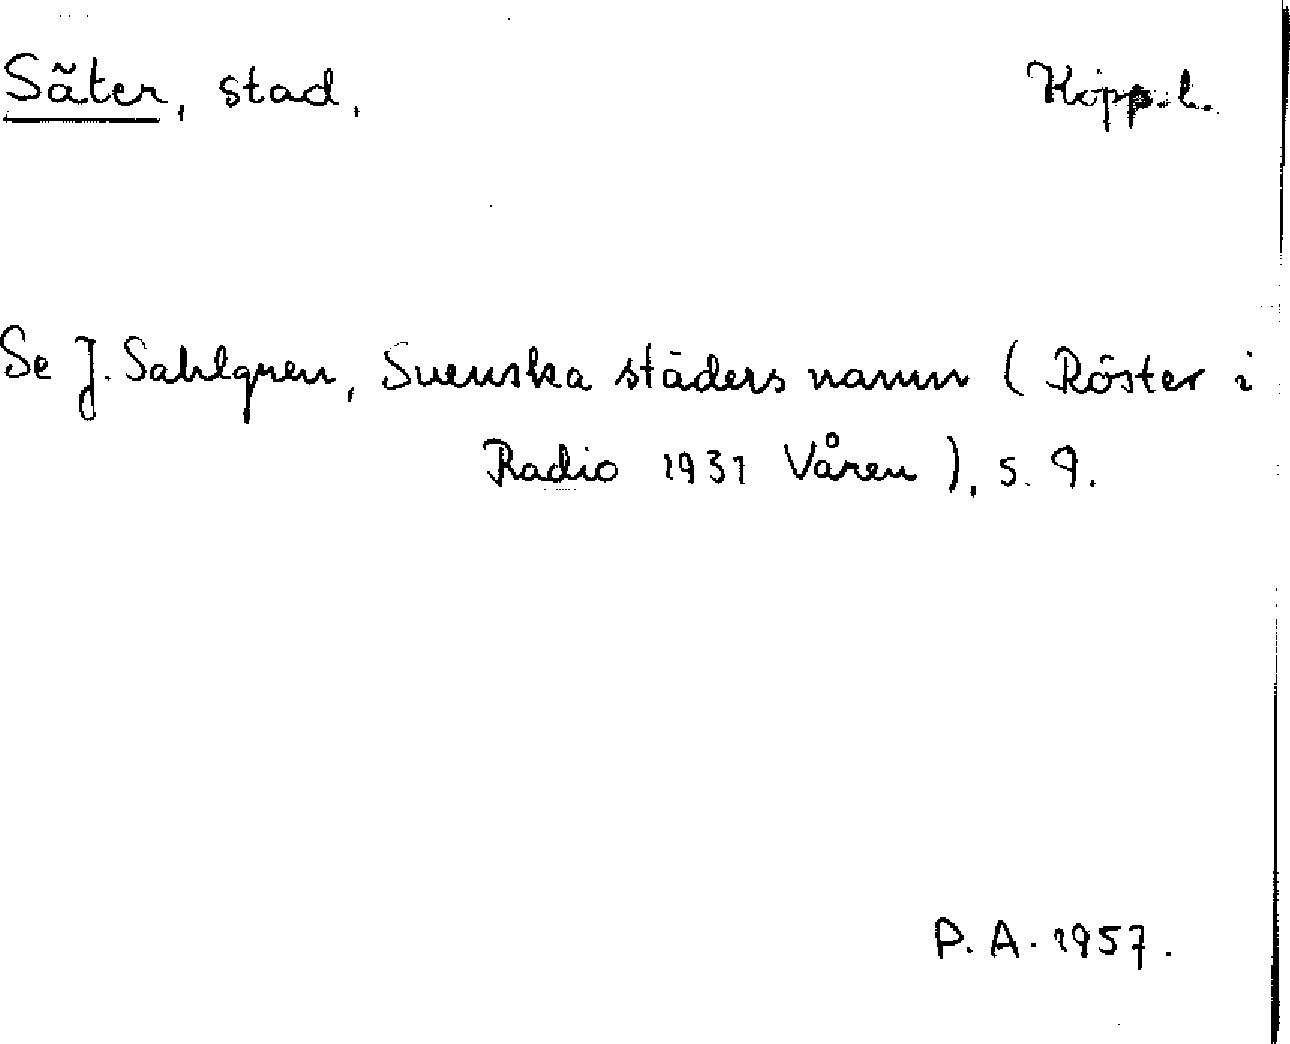 Säter, stad, Kopp. l.
Se J. Sahlgren, Svenska städers namn ( Röster i
Radio 1931 Våren ), s. 9.
P. A. 1957.